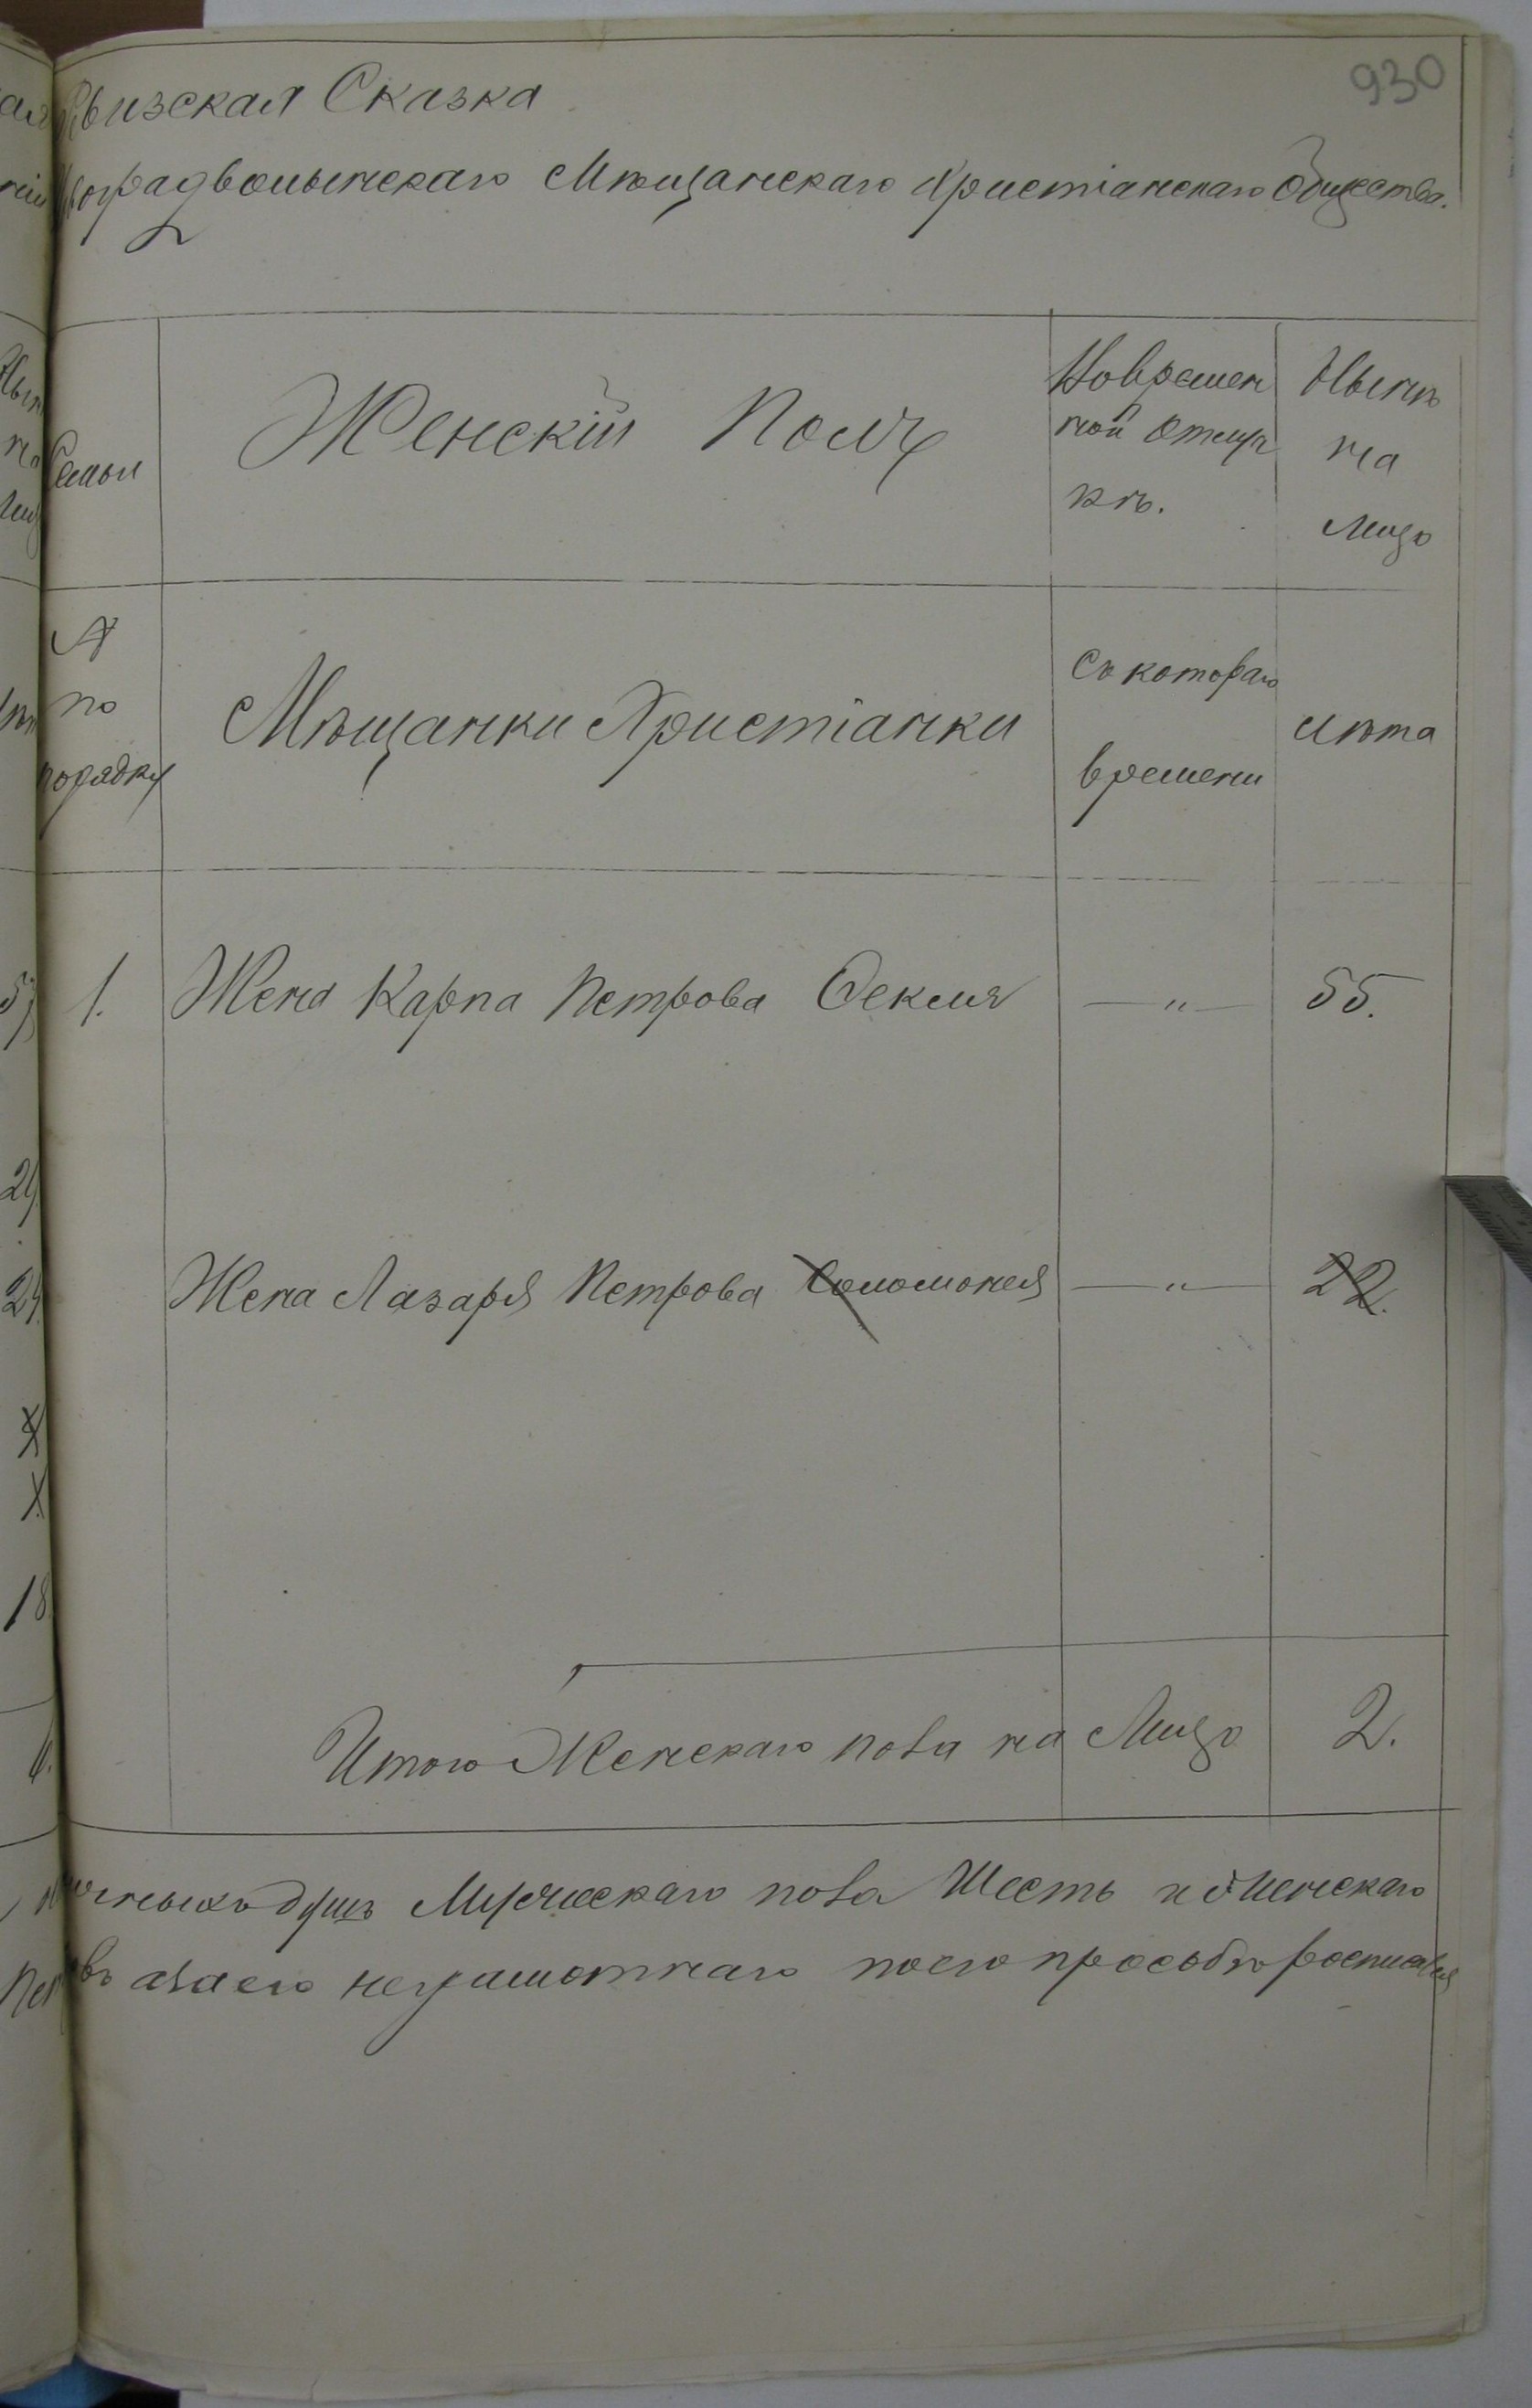 930
Ревизская Сказка
Новоградволынскаго Мѣщанскаго Христіанскаго Общества.
Семьи
Женскій Полъ
Во времен
ной отлуч
кѣ.
Нынѣ
на
лицо
№
по
порядку
Мѣщанки Христіанки
Съ котораго
времени
Лѣта
1. Жена Карпа Петрова Фекля —„— 55.
Жена Лазаря Петрова Соломонея —„— 22.
Итого Женскаго пола на Лицо 2.
душъ Мужескаго пола Шесть и Женскаго
а за его неграмотнаго по его прозьбѣ росписался
29
24.
18